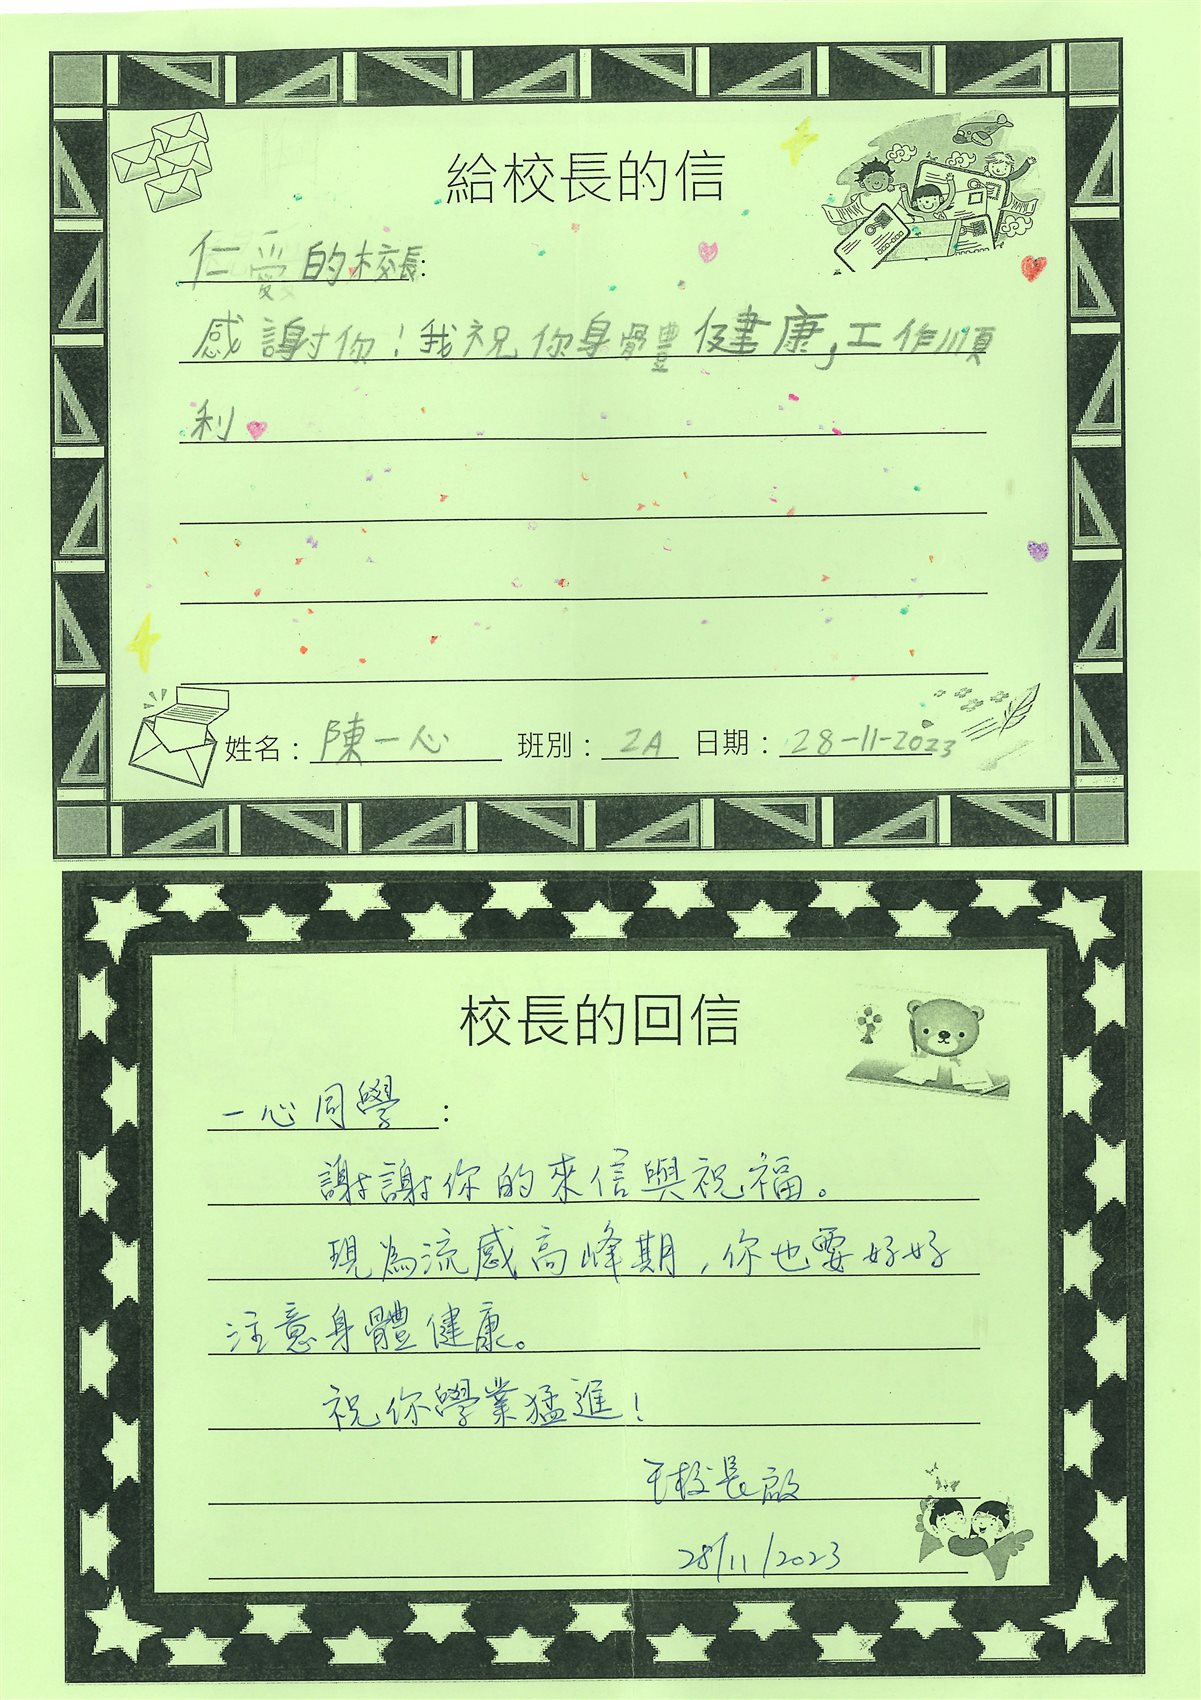 給校長的信
仁愛的校長:
感謝你！我祝你身體健康，工作順
利
姓名：陳一心 班別：2A 日期：28-11-2023
校長的回信
一心同學：
謝謝你的來信與祝福。
現為流感高峰期，你也要好好
注意身體健康。
祝你學業猛進！
王校長啟
28/11/2023